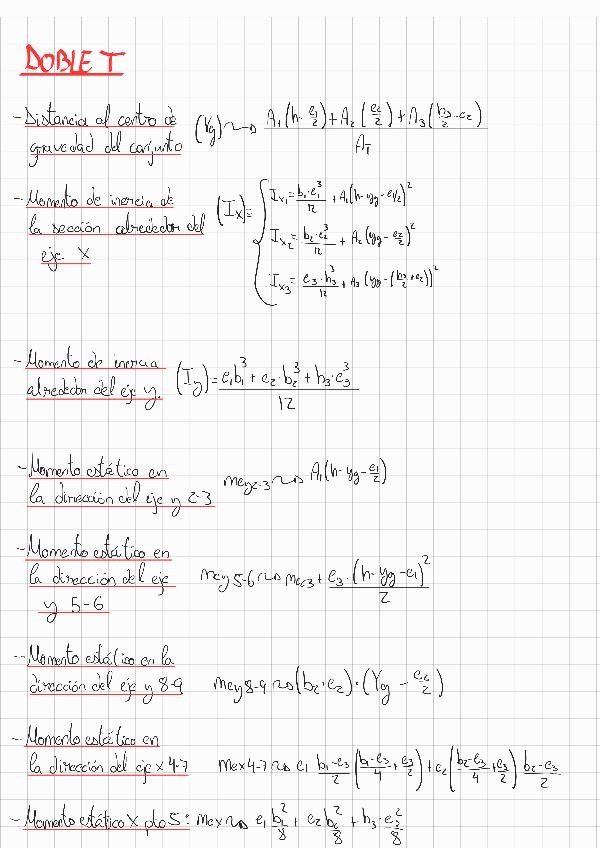 DOBLE T
- Distancia al centro de gravedad del conjunto (Yg) ~> A₁(h-e₁/2)+A₂(e₂/2)+A₃(h₃/2-e₂) / A_T
- Momento de inercia de la sección alrededor del eje X (Ix)=
Ix₁=b₁·e₁³/12 + A₁(h-yg-e₁/2)²
Ix₂=b₂·e₂³/12 + A₂(yg-e₂/2)²
Ix₃=e₃·h₃³/12 + A₃(yg-(h₃/2+e₂))²
- Momento de inercia alrededor del eje y. (Iy)=e₁b₁³+e₂·b₂³+h₃·e₃³ / 12
- Momento estático en la dirección del eje y 2-3 mey2-3 ~> A₁(h-yg-e₁/2)
- Momento estático en la dirección del eje y 5-6 mey5-6 ~> me₂3+e₃·(h-yg-e₁)²/2
- Momento estático en la dirección del eje y 8-9 mey8-9 ~> (b₂·e₂)·(Yg-e₂/2)
- Momento estático en la dirección del eje x 4-7 mex4-7 ~> e₁ b₁-e₃/2 (b₁-e₃/4+e₃/2)+e₂(b₂-e₃/4+e₃/2) b₂-e₃/2
- Momento estático X pto 5: mex ~> e₁ b₁²/8 + e₂ b₂²/8 + h₃·e₃²/8